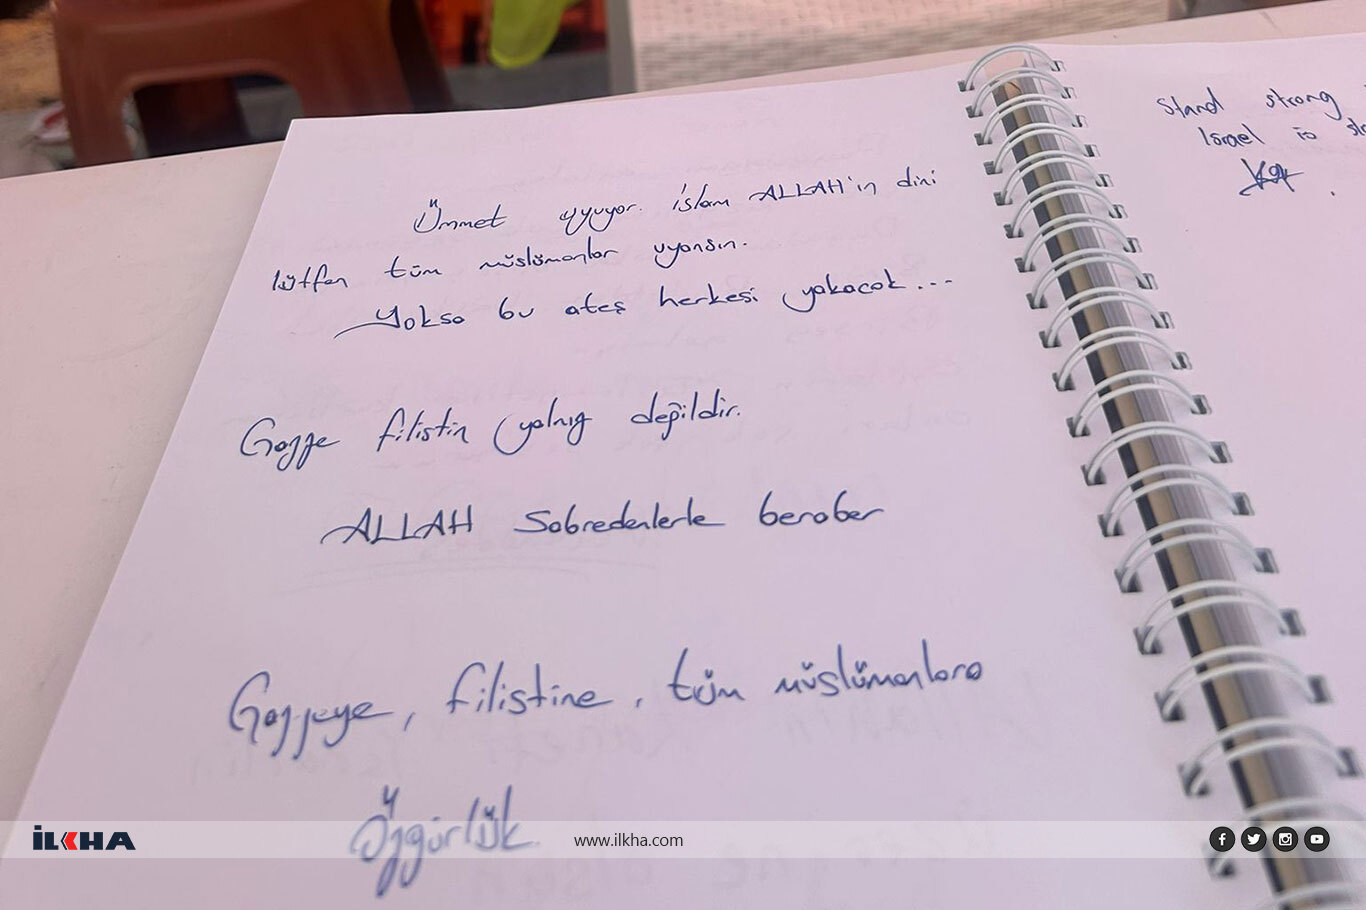 Ümmet uyuyor. İslam ALLAH'ın dini
lütfen tüm müslümanlar uyansın.
Yoksa bu ateş herkesi yakacak...
Gazze filistin yalnız değildir.
ALLAH Sabredenlerle beraber
Gazzeye, filistine, tüm müslümanlara
Özgürlük
Stand strong
Israel is
İLKHA
www.ilkha.com